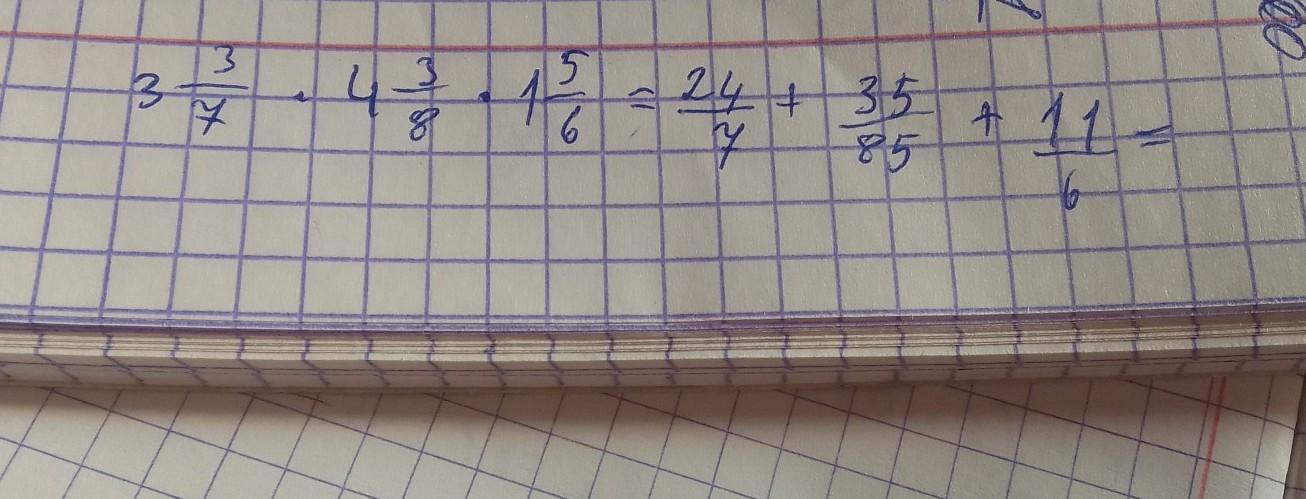 3 3/7 · 4 3/8 · 1 5/6 = 24/7 + 35/85 + 11/6 =